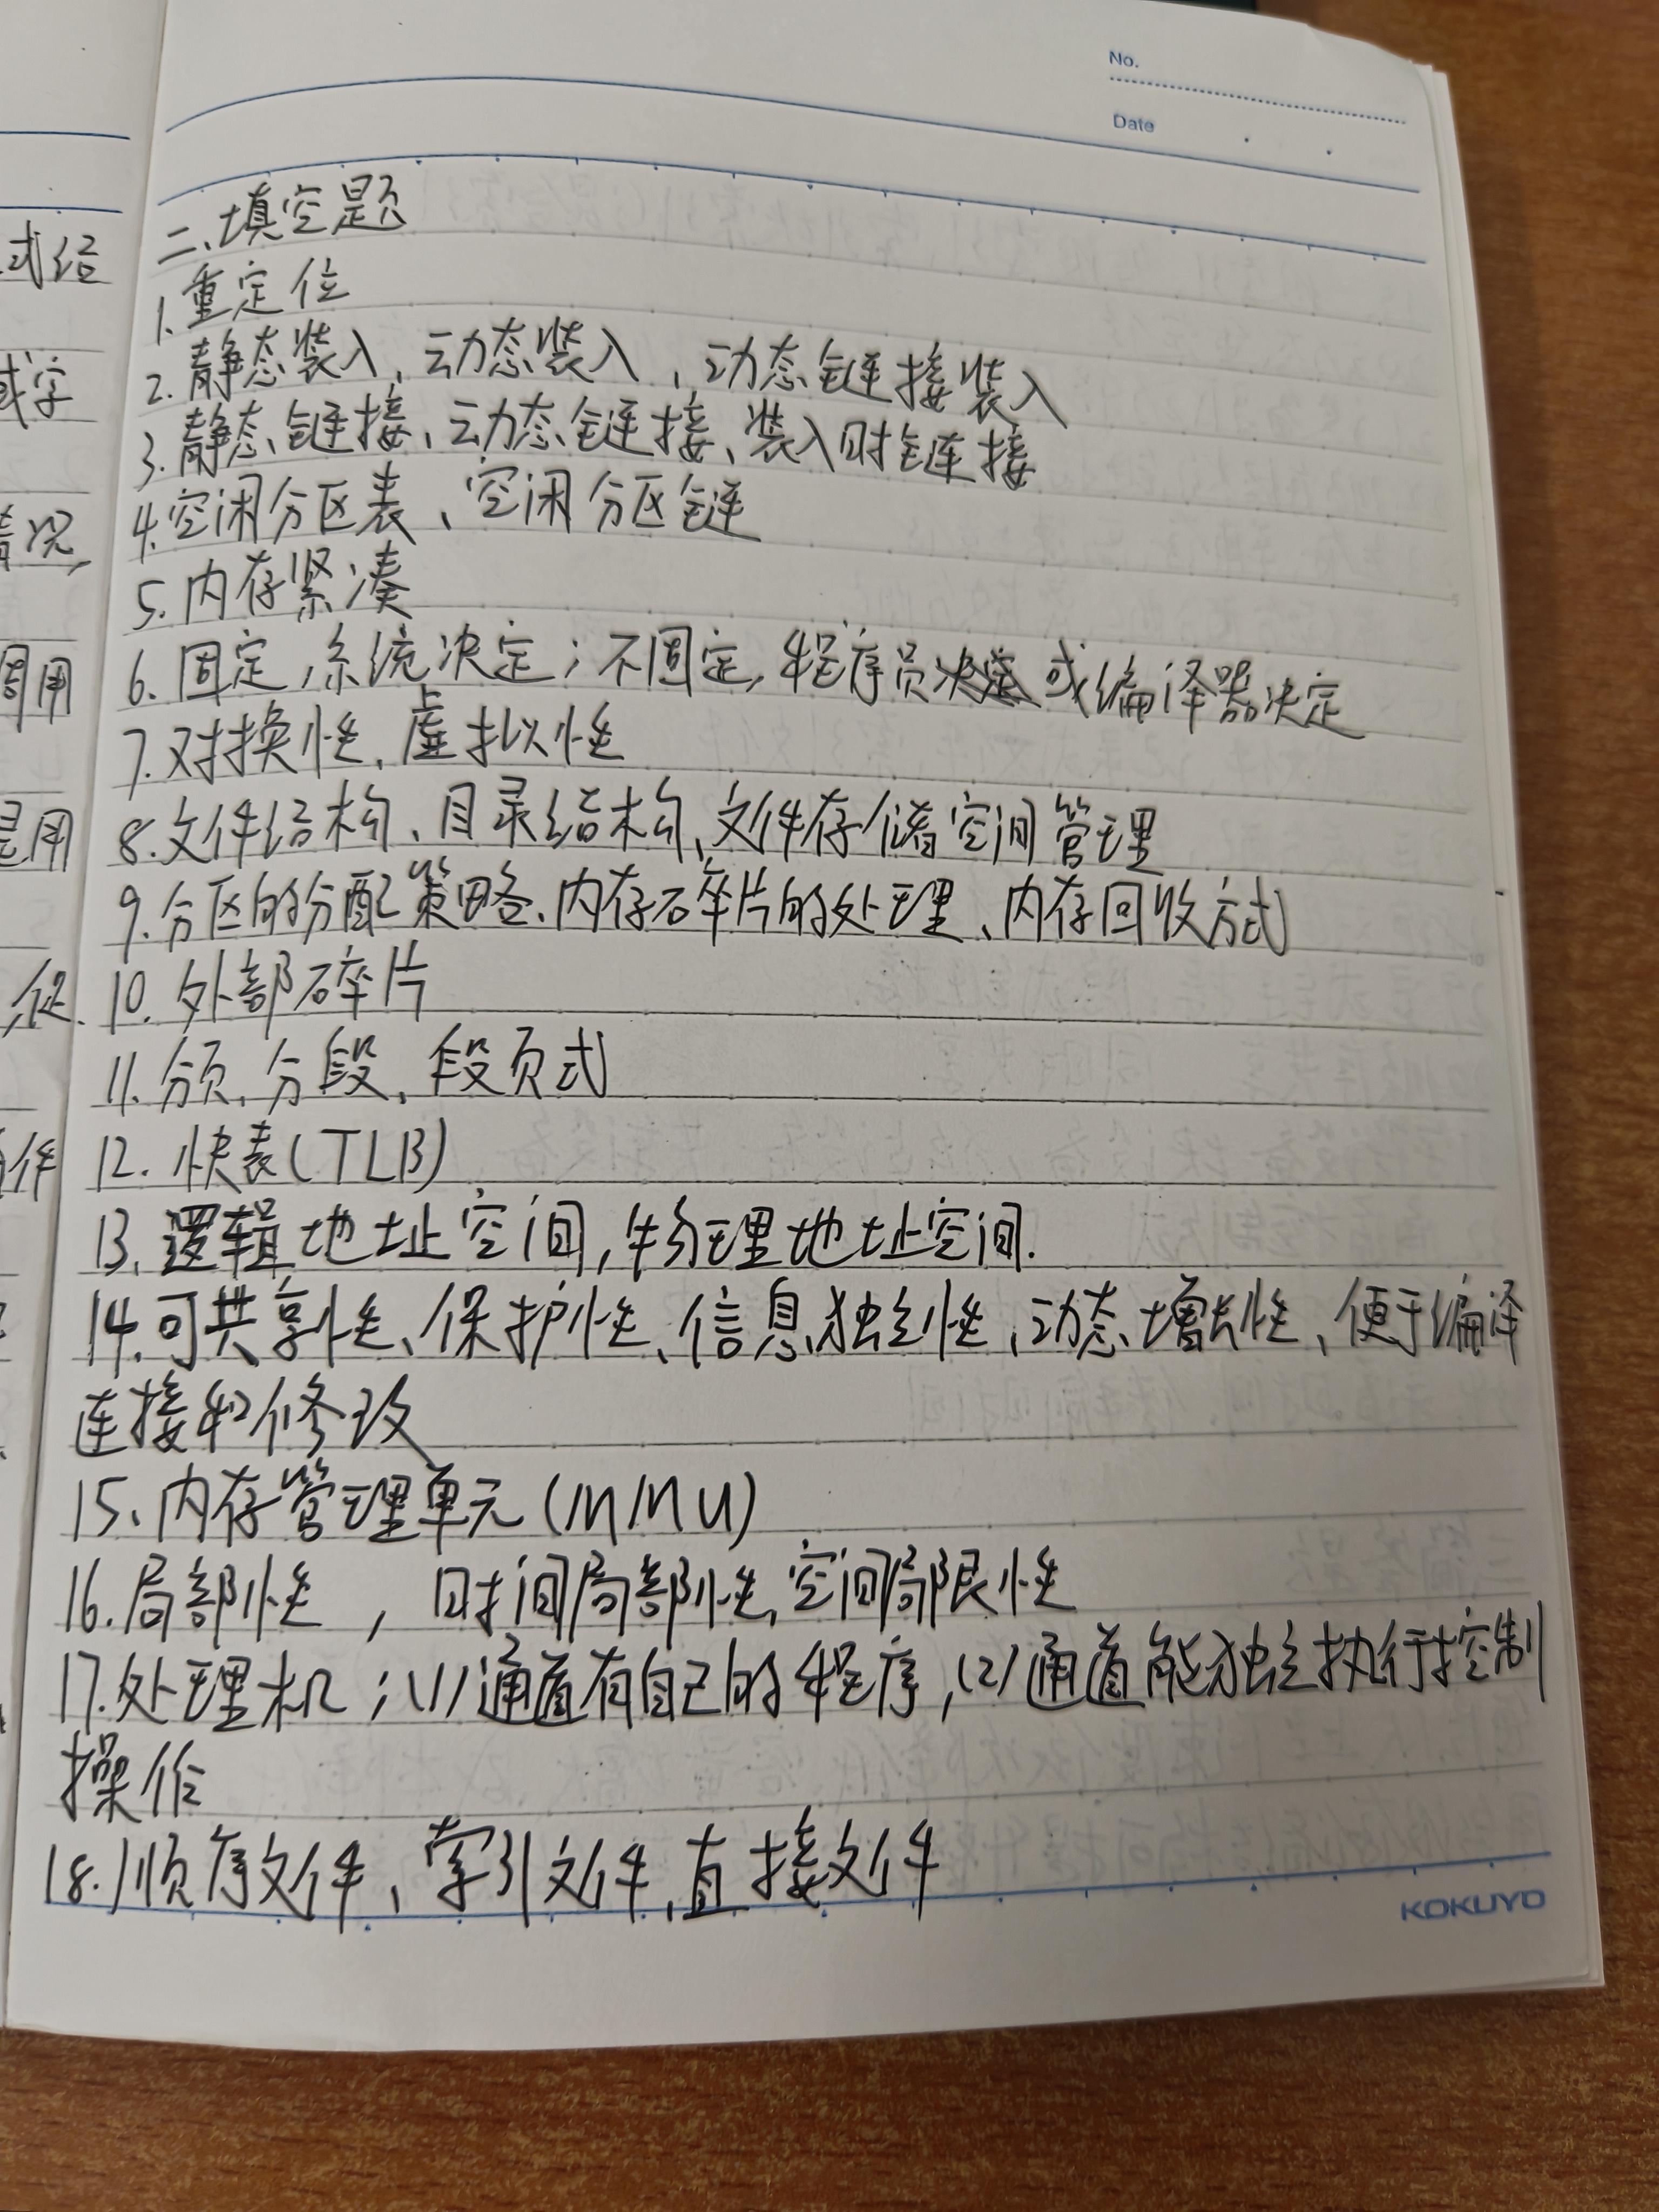 No.
Date
式给
或字
情况,
调用
是用
,促
作
二、填空题
1.重定位
2.静态装入、动态装入、动态链接装入
3.静态链接、动态链接、装入时链接
4.空闲分区表、空闲分区链
5.内存紧凑
6.固定,系统决定;不固定,程序员决定或编译器决定
7.对换性、虚拟性
8.文件结构、目录结构、文件存储空间管理
9.分区的分配策略、内存碎片的处理、内存回收方式
10.外部碎片
11.分页、分段、段页式
12.快表(TLB)
13.逻辑地址空间,物理地址空间.
14.可共享性、保护性、信息独立性、动态增长性、便于编译
连接和修改
15、内存管理单元(MMU)
16.局部性 , 时间局部性,空间局限性
17.处理机;(1)通道有自己的程序,(2)通道能独立执行控制
操作
18.顺序文件、索引文件、直接文件
KOKUYO